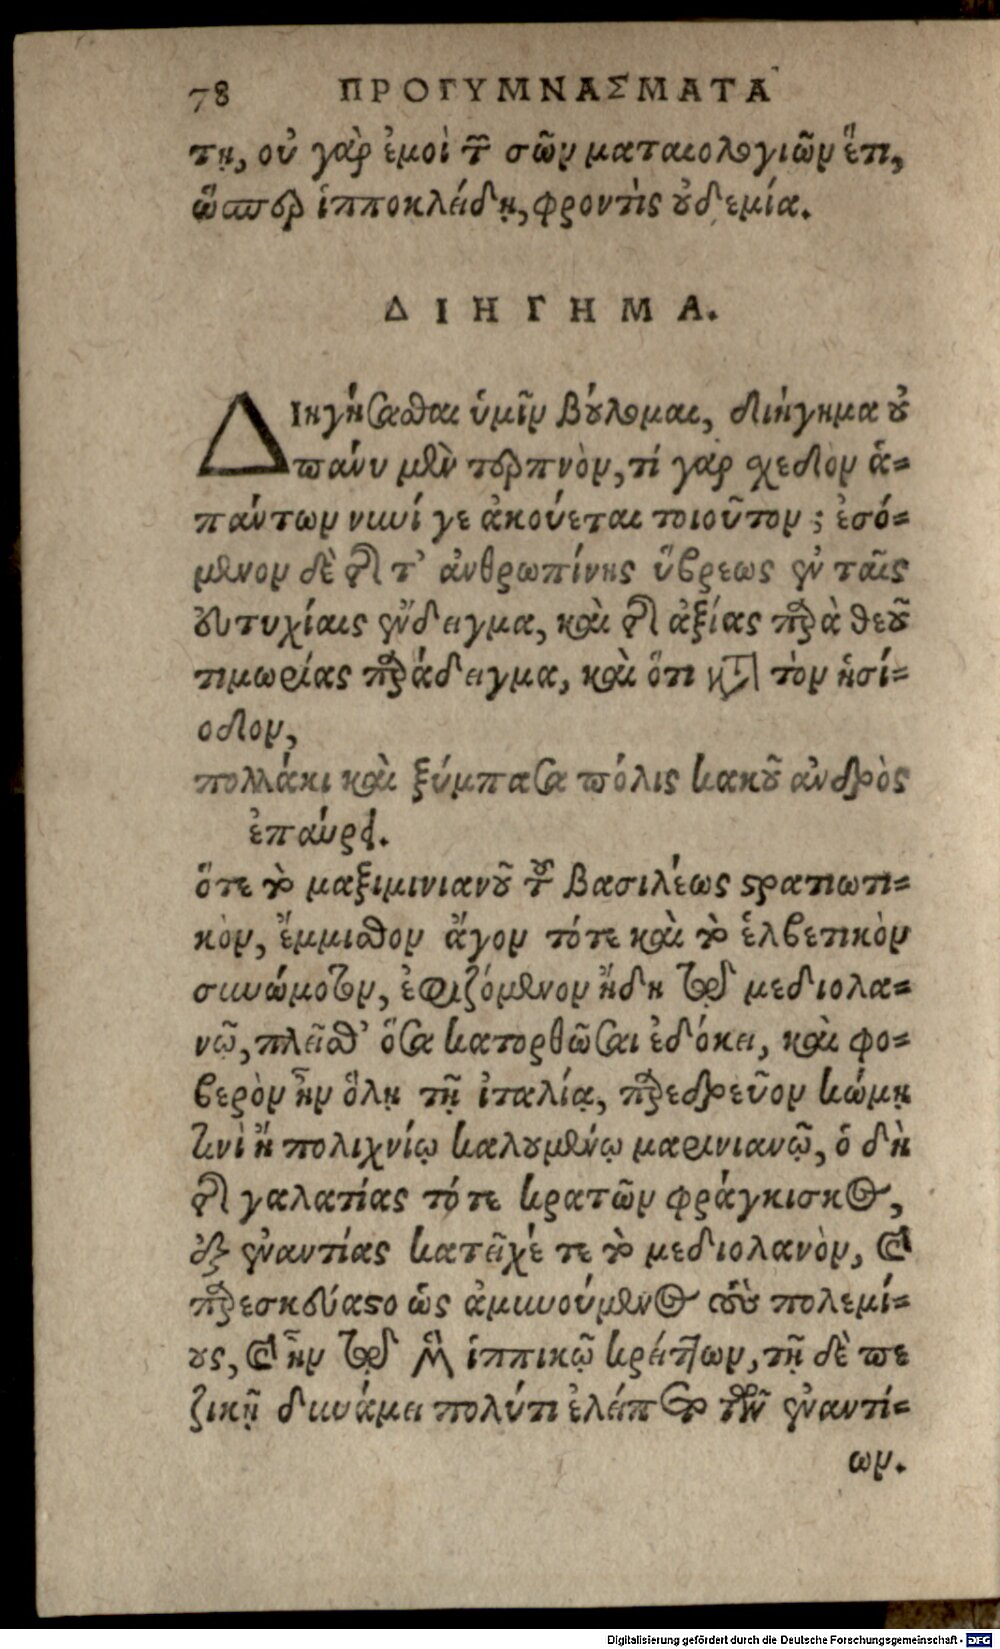 78 ΠΡΟΓΥΜΝΑΣΜΑΤΑ
τῃ, οὐ γὰρ ἐμοὶ τῶν σῶν ματαιολογιῶν ἔτι,
ὥσπερ ἱπποκλείδῃ, φροντὶς οὐδεμία.
ΔΙΗΓΗΜΑ.
ΔΙηγήσασθαι ὑμῖν βούλομαι, διήγημα οὐ
πάνυ μὲν τερπνὸν, τί γὰρ σχεδὸν ἁ-
πάντων νυνί γε ἀκούεται τοιοῦτον; ἐσό-
μενον δὲ τῆς τ' ἀνθρωπίνης ὕβρεως ἐν ταῖς
εὐτυχίαις ἔνδειγμα, καὶ τῆς ἀξίας παρὰ θεοῦ
τιμωρίας παράδειγμα, καὶ ὅτι κατὰ τὸν ἡσί-
οδον,
πολλάκι καὶ ξύμπασα πόλις κακοῦ ἀνδρὸς
ἐπαύρει.
ὅτε τὸ μαξιμινιανοῦ τοῦ βασιλέως στρατιωτι-
κὸν, ἔμμισθον ἄγον τότε καὶ τὸ ἑλβετικὸν
συνώμοτον, ἐφιζόμενον ἤδη τῷ μεδιολα-
νῷ, πλεῖσθ' ὅσα κατορθῶσαι ἐδόκει, καὶ φο-
βερὸν ἦν ὅλῃ τῇ ἰταλίᾳ, προσεδρεῦον κώμῃ
τινὶ ἢ πολιχνίῳ καλουμένῳ μαρινιανῷ, ὁ δὴ
τῆς γαλατίας τότε κρατῶν φράγκισκος,
ἐξ ἐναντίας κατεῖχέ τε τὸ μεδιολανὸν, καὶ
παρεσκεύαστο ὡς ἀμυνούμενος τοὺς πολεμί-
ους, καὶ ἦν τῷ μὲν ἱππικῷ κρείττων, τῇ δὲ πε
ζικῇ δυνάμει πολύ τι ἐλείπετο τῶν ἐναντί-
ων.
Digitalisierung gefördert durch die Deutsche Forschungsgemeinschaft - DFG